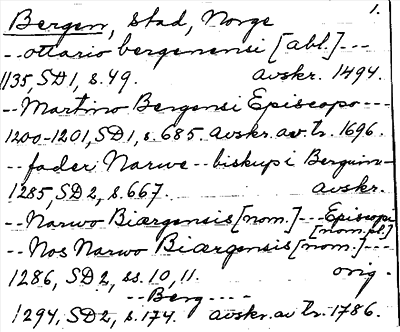 1.
Bergen, stad, Norge
--ottario bergenensi [abl.]---
1135, SD1, s.49. avskr. 1494.
--Martino Bergensi Episcopo---
1200-1201, SD1, s.685. avskr. av tr. 1696.
--fader Narwe--biskup i Berguin--
1285, SD2, s.667. avskr.
--Narwo Biærgensis [nom.]---Episcopi [nom.pl.]
--Nos Narwo Biærgensis [nom.]---
1286, SD2, ss.10,11. orig.
--Berg----
1294, SD2, s.174. avskr. av tr. 1786.